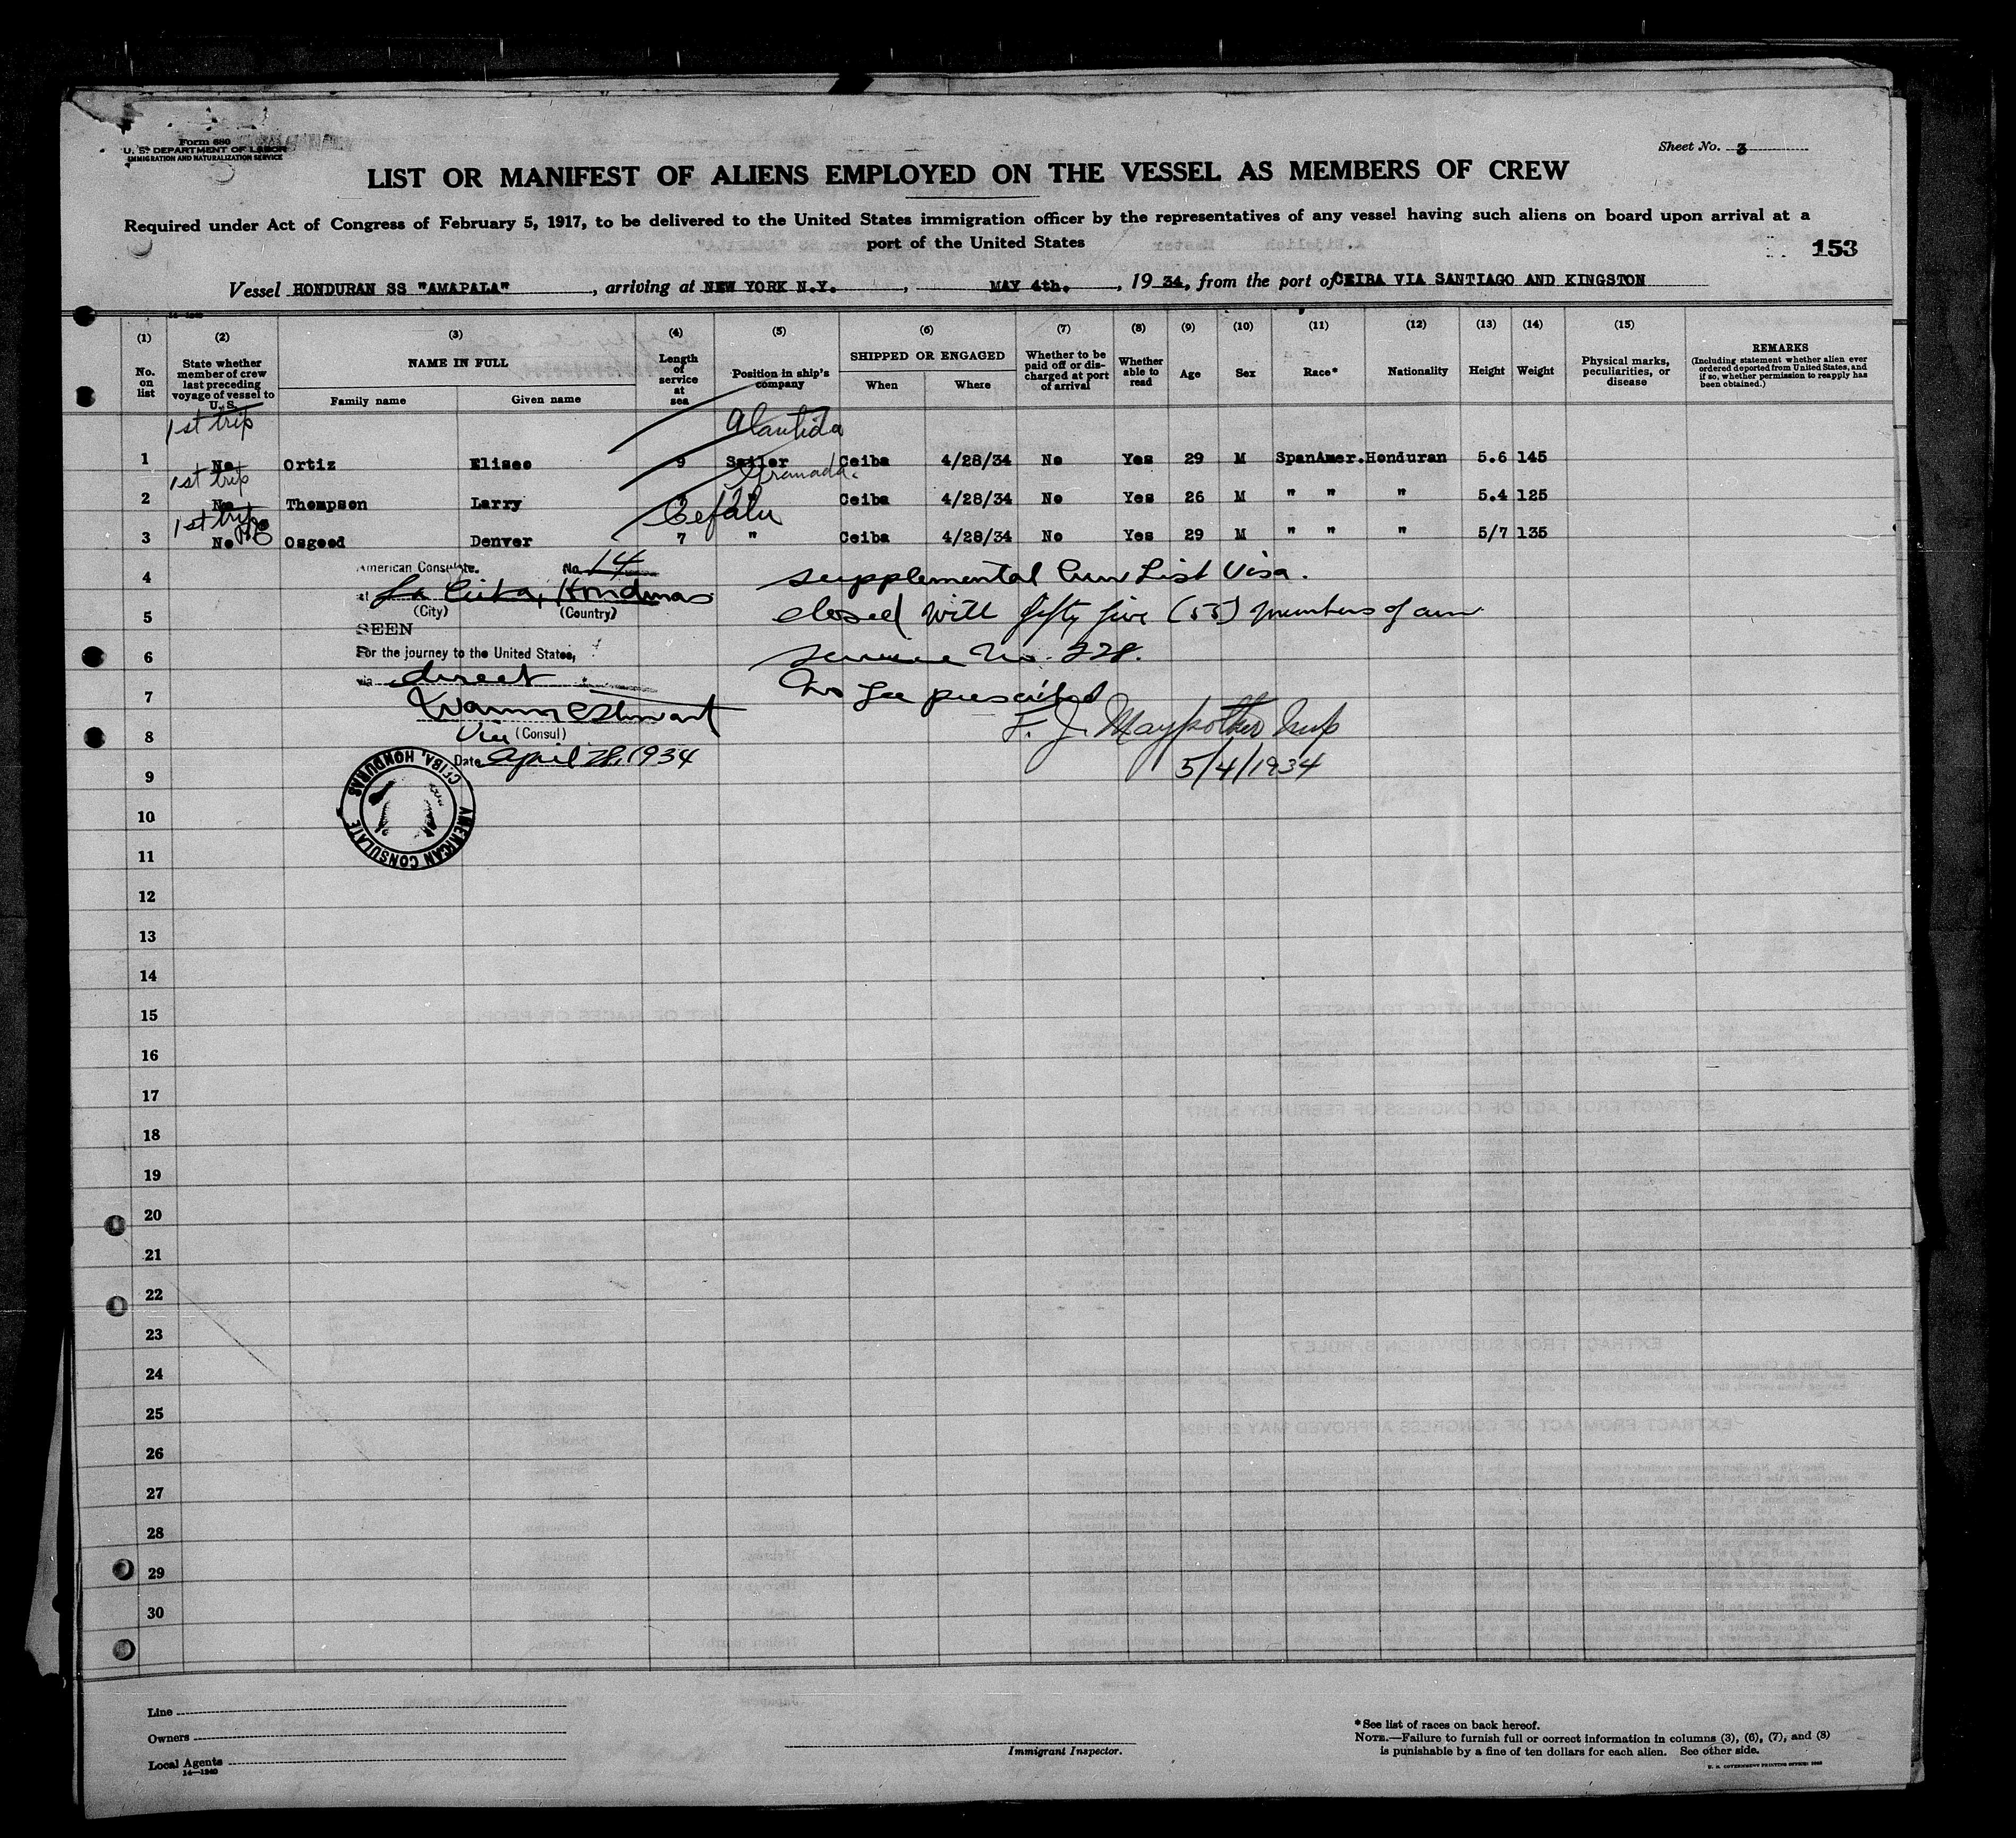 Form 680
U. S. DEPARTMENT OF LABOR
IMMIGRATION AND NATURALIZATION SERVICE
Sheet No. 3
LIST OR MANIFEST OF ALIENS EMPLOYED ON THE VESSEL AS MEMBERS OF CREW
Required under Act of Congress of February 5, 1917, to be delivered to the United States immigration officer by the representatives of any vessel having such aliens on board upon arrival at a
port of the United States
153
Vessel HONDURAN SS "AMAPALA", arriving at NEW YORK N.Y., MAY 4th., 19 34, from the port of CEIBA VIA SANTIAGO AND KINGSTON
14—1240
(1) (2) (3) (4) (5) (6) (7) (8) (9) (10) (11) (12) (13) (14) (15)
No. on list
State whether member of crew last preceding voyage of vessel to U. S.
NAME IN FULL
Family name Given name
Length of service at sea
Position in ship's company
SHIPPED OR ENGAGED
When Where
Whether to be paid off or discharged at port of arrival
Whether able to read
Age
Sex
Race*
Nationality
Height
Weight
Physical marks, peculiarities, or disease
REMARKS
(Including statement whether alien ever ordered deported from United States, and if so, whether permission to reapply has been obtained.)
1st trip Atlantida
1 No Ortiz Eliseo 9 Sailor Ceiba 4/28/34 No Yes 29 M SpanAmer. Honduran 5.6 145
1st trip Granada.
2 No Thompson Larry " Ceiba 4/28/34 No Yes 26 M " " " 5.4 125
1st trip Cefalu
3 No Osgood Denver 7 " Ceiba 4/28/34 No Yes 29 M " " " 5/7 135
American Consulate. No. 14
4 supplemental Crew List Visa.
at La Ceiba, Honduras
(City) (Country)
5 closed with fifty five (55) members of crew
SEEN
For the journey to the United States,
6 service No. 228.
via direct
7 No fee prescribed
Warren C Stewart
8 F. J. Maypother Insp
Vice (Consul)
Date April 28, 1934
9 5/4/1934
AMERICAN CONSULATE CEIBA, HONDURAS
10
11
12
13
14
15
16
17
18
19
20
21
22
23
24
25
26
27
28
29
30
Line
Owners
Local Agents
14—1240
Immigrant Inspector.
*See list of races on back hereof.
NOTE.—Failure to furnish full or correct information in columns (3), (6), (7), and (8)
is punishable by a fine of ten dollars for each alien. See other side.
U. S. GOVERNMENT PRINTING OFFICE: